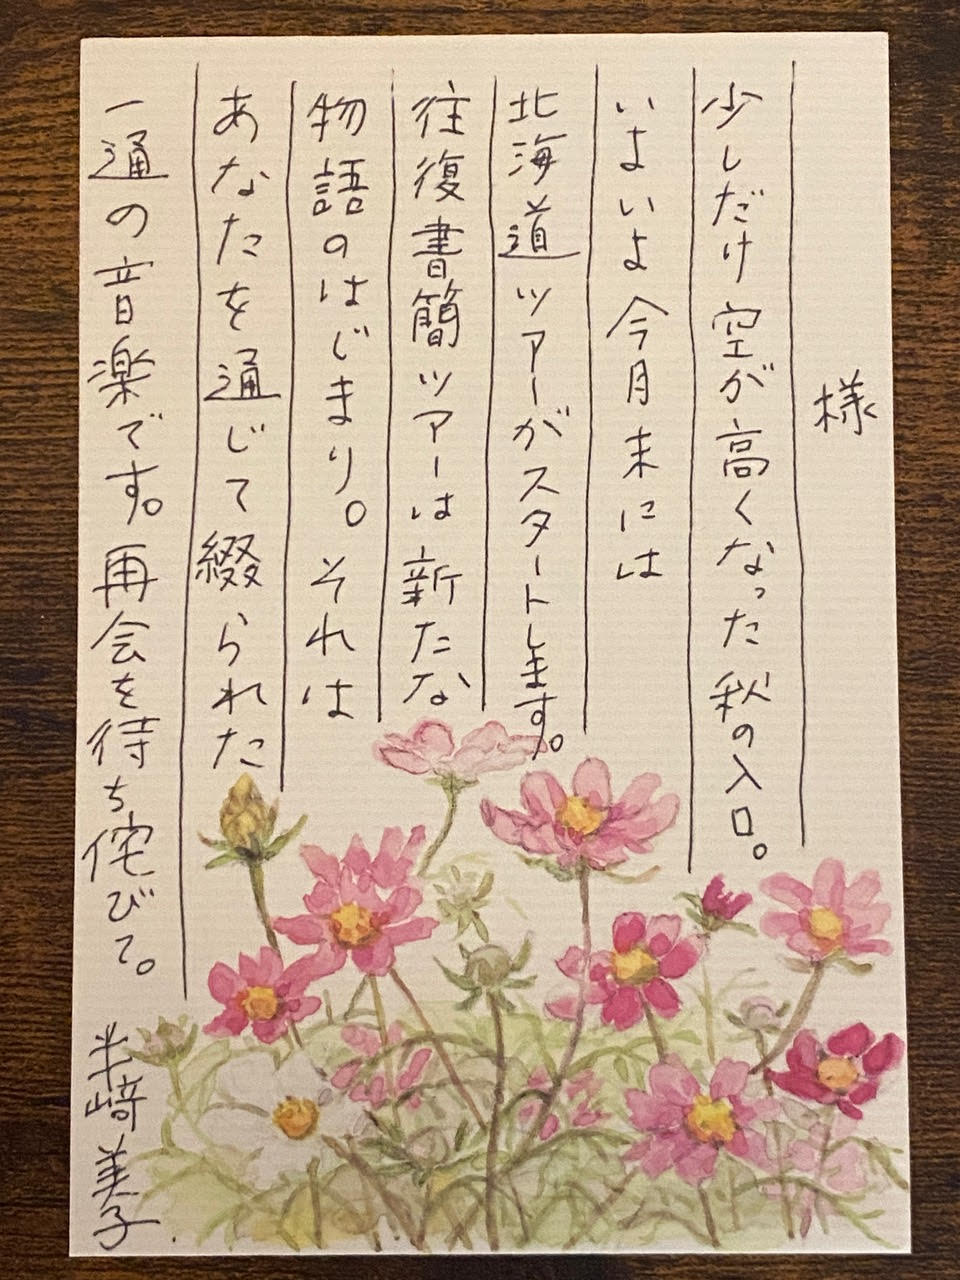 様
少しだけ空が高くなった秋の入口。
いよいよ今月末には
北海道ツアーがスタートします。
往復書簡ツアーは新たな
物語のはじまり。それは
あなたを通じて綴られた
一通の音楽です。再会を待ち侘びて。
半﨑美子